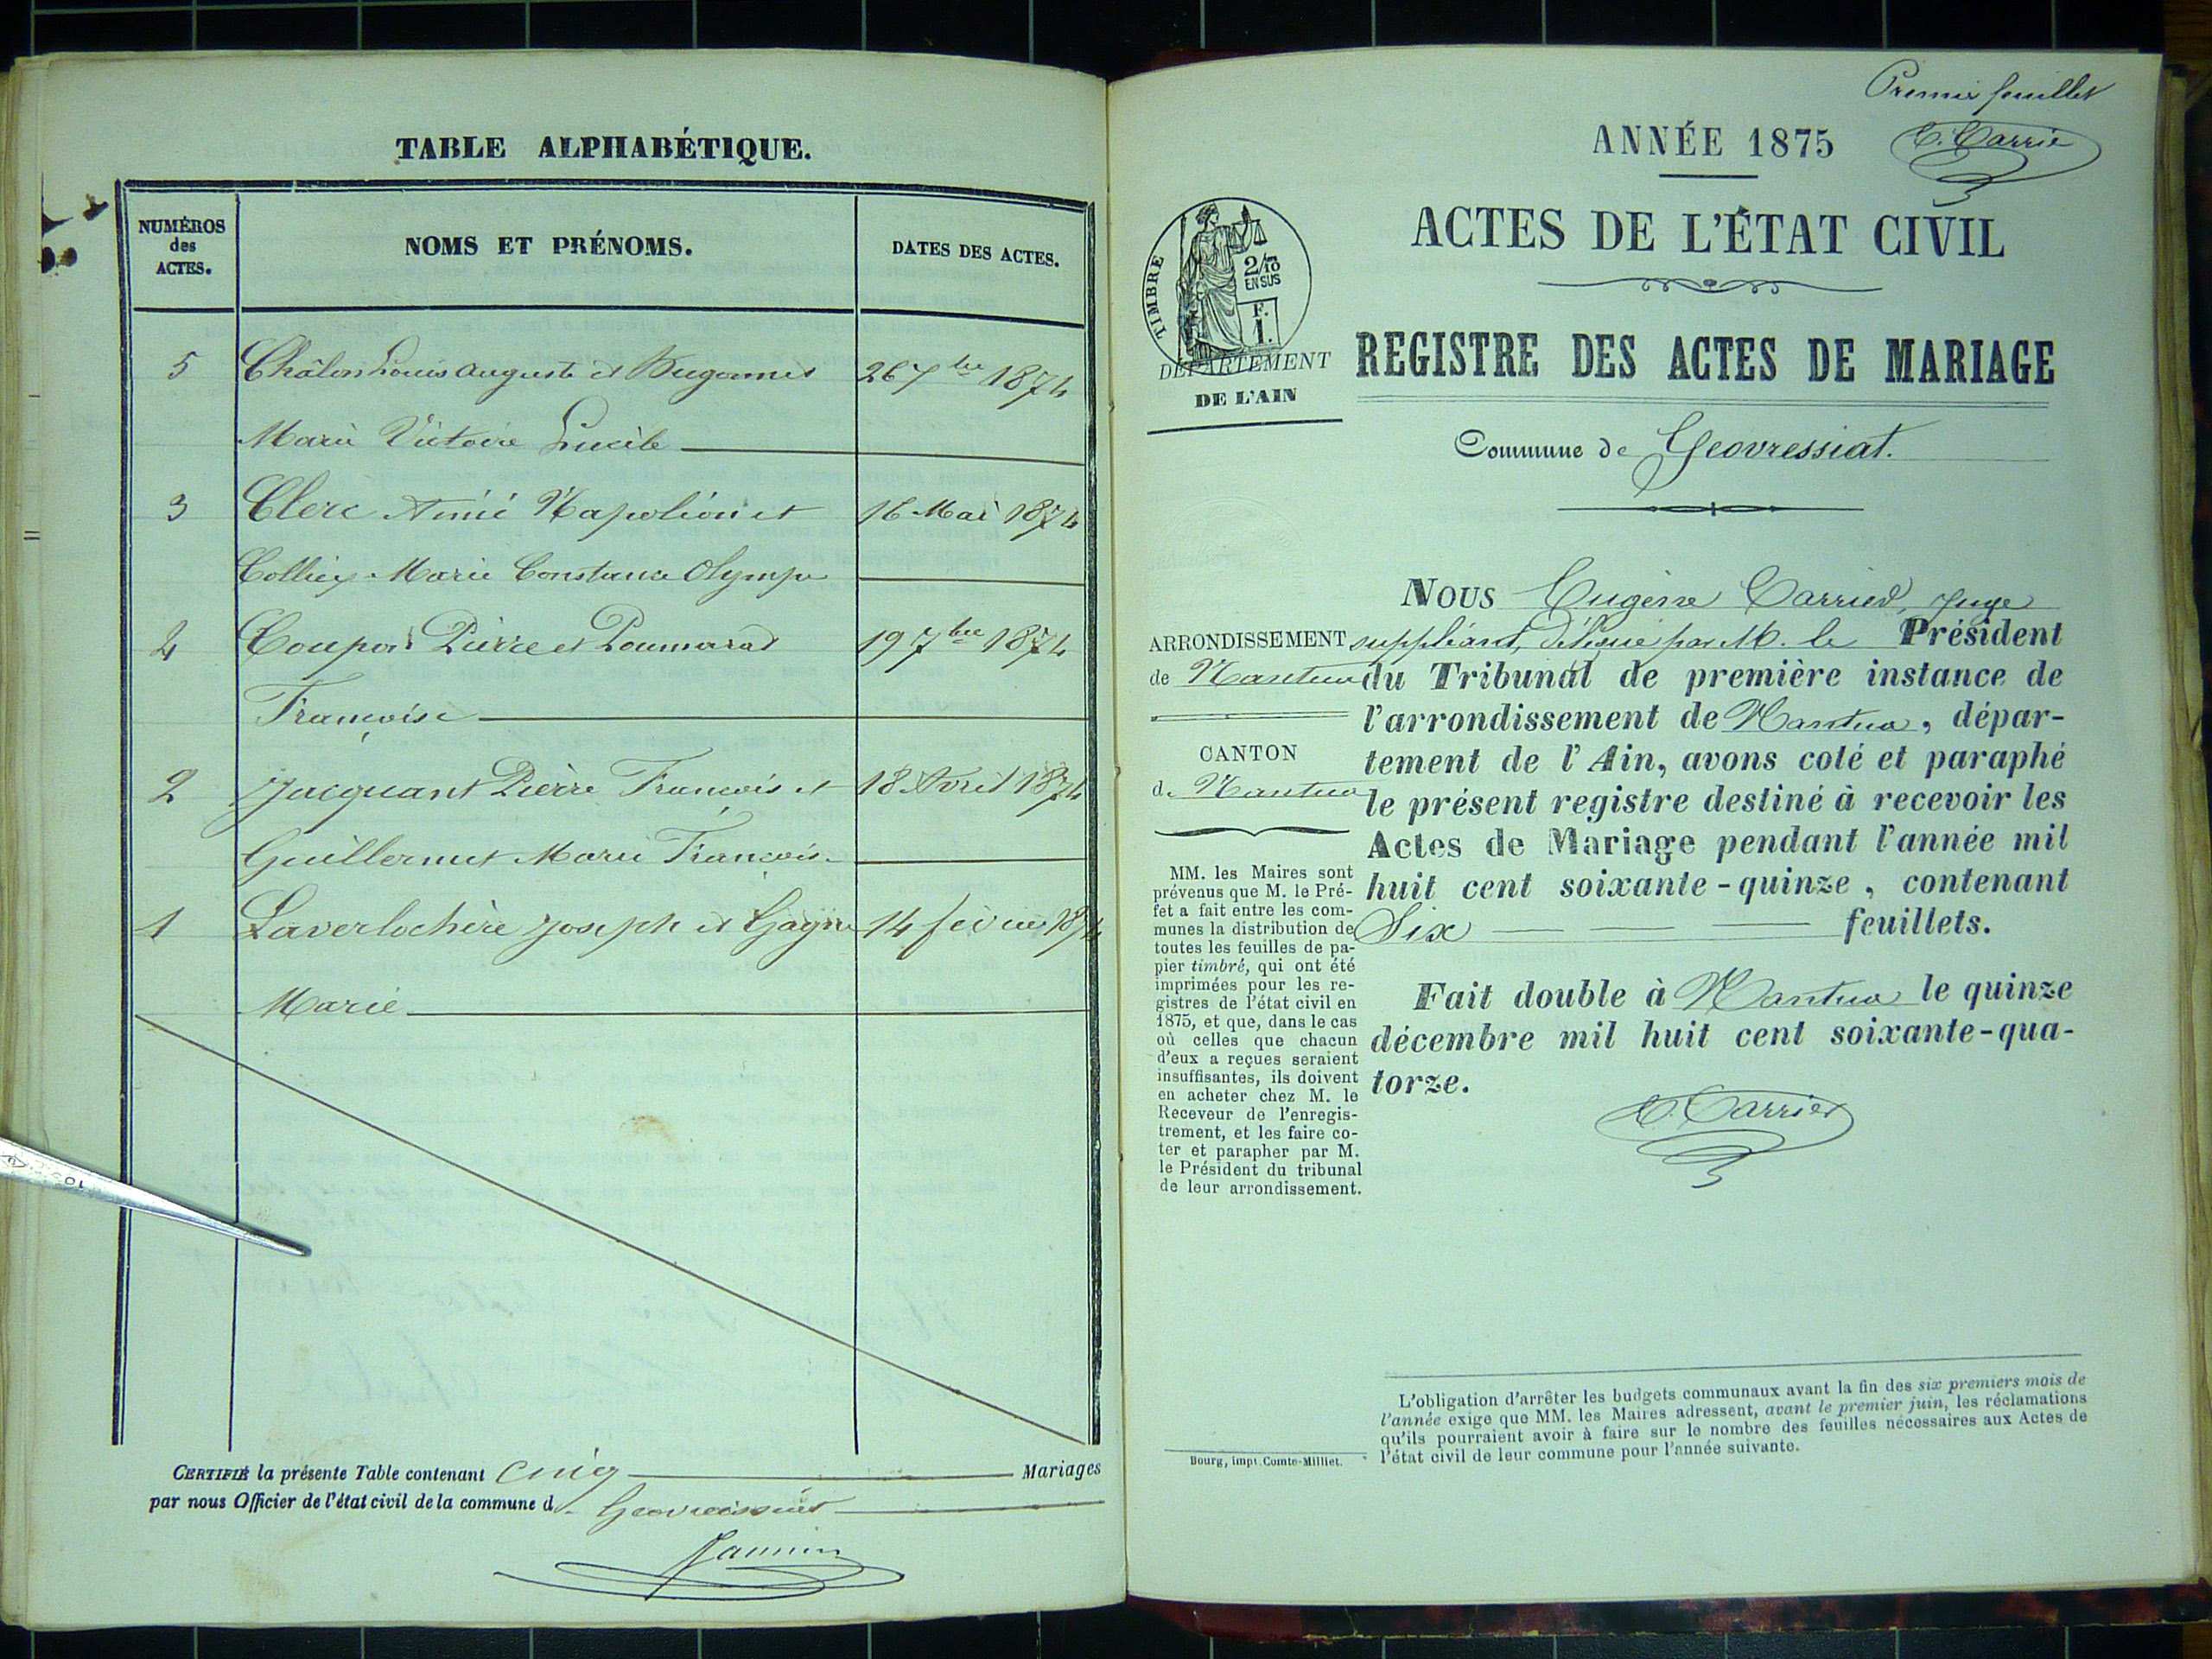 TABLE ALPHABÉTIQUE.
NUMÉROS
des
ACTES.
NOMS ET PRÉNOMS.
DATES DES ACTES.
5 Châlon Louis Auguste et 26 7bre 1874
Marie Victoire Lucile
3 Clerc Aimé Napoléon et 16 Mai 1874
Marie Constance Olympe
4 Pierre et 19 7bre 1874
Françoise
2 Jacquant Pierre François et 18 Avril 1874
Guillermet Marie François
1 Laverlochère Joseph et 14 février 1874
Marie
CERTIFIÉ la présente Table contenant Cinq Mariages
par nous Officier de l'état civil de la commune d
Premier feuillet
ANNÉE 1875
ACTES DE L'ÉTAT CIVIL
TIMBRE
2/10
EN SUS
F.
1.
DÉPARTEMENT
DE L'AIN
REGISTRE DES ACTES DE MARIAGE
Commune de Geovressiat.
ARRONDISSEMENT
de Nantua
CANTON
de Nantua
MM. les Maires sont
prévenus que M. le Pré-
fet a fait entre les com-
munes la distribution de
toutes les feuilles de pa-
pier timbré, qui ont été
imprimées pour les re-
gistres de l'état civil en
1875, et que, dans le cas
où celles que chacun
d'eux a reçues seraient
insuffisantes, ils doivent
en acheter chez M. le
Receveur de l'enregis-
trement, et les faire co-
ter et parapher par M.
le Président du tribunal
de leur arrondissement.
NOUS Eugène Carrier, juge
suppléant, délégué par M. le Président
du Tribunal de première instance de
l'arrondissement de Nantua, dépar-
tement de l'Ain, avons coté et paraphé
le présent registre destiné à recevoir les
Actes de Mariage pendant l'année mil
huit cent soixante-quinze, contenant
Six feuillets.
Fait double à Nantua le quinze
décembre mil huit cent soixante-qua-
torze.
E. Carrier
L'obligation d'arrêter les budgets communaux avant la fin des six premiers mois de
l'année exige que MM. les Maires adressent, avant le premier juin, les réclamations
qu'ils pourraient avoir à faire sur le nombre des feuilles nécessaires aux Actes de
l'état civil de leur commune pour l'année suivante.
Bourg, impr. Comte-Milliet.